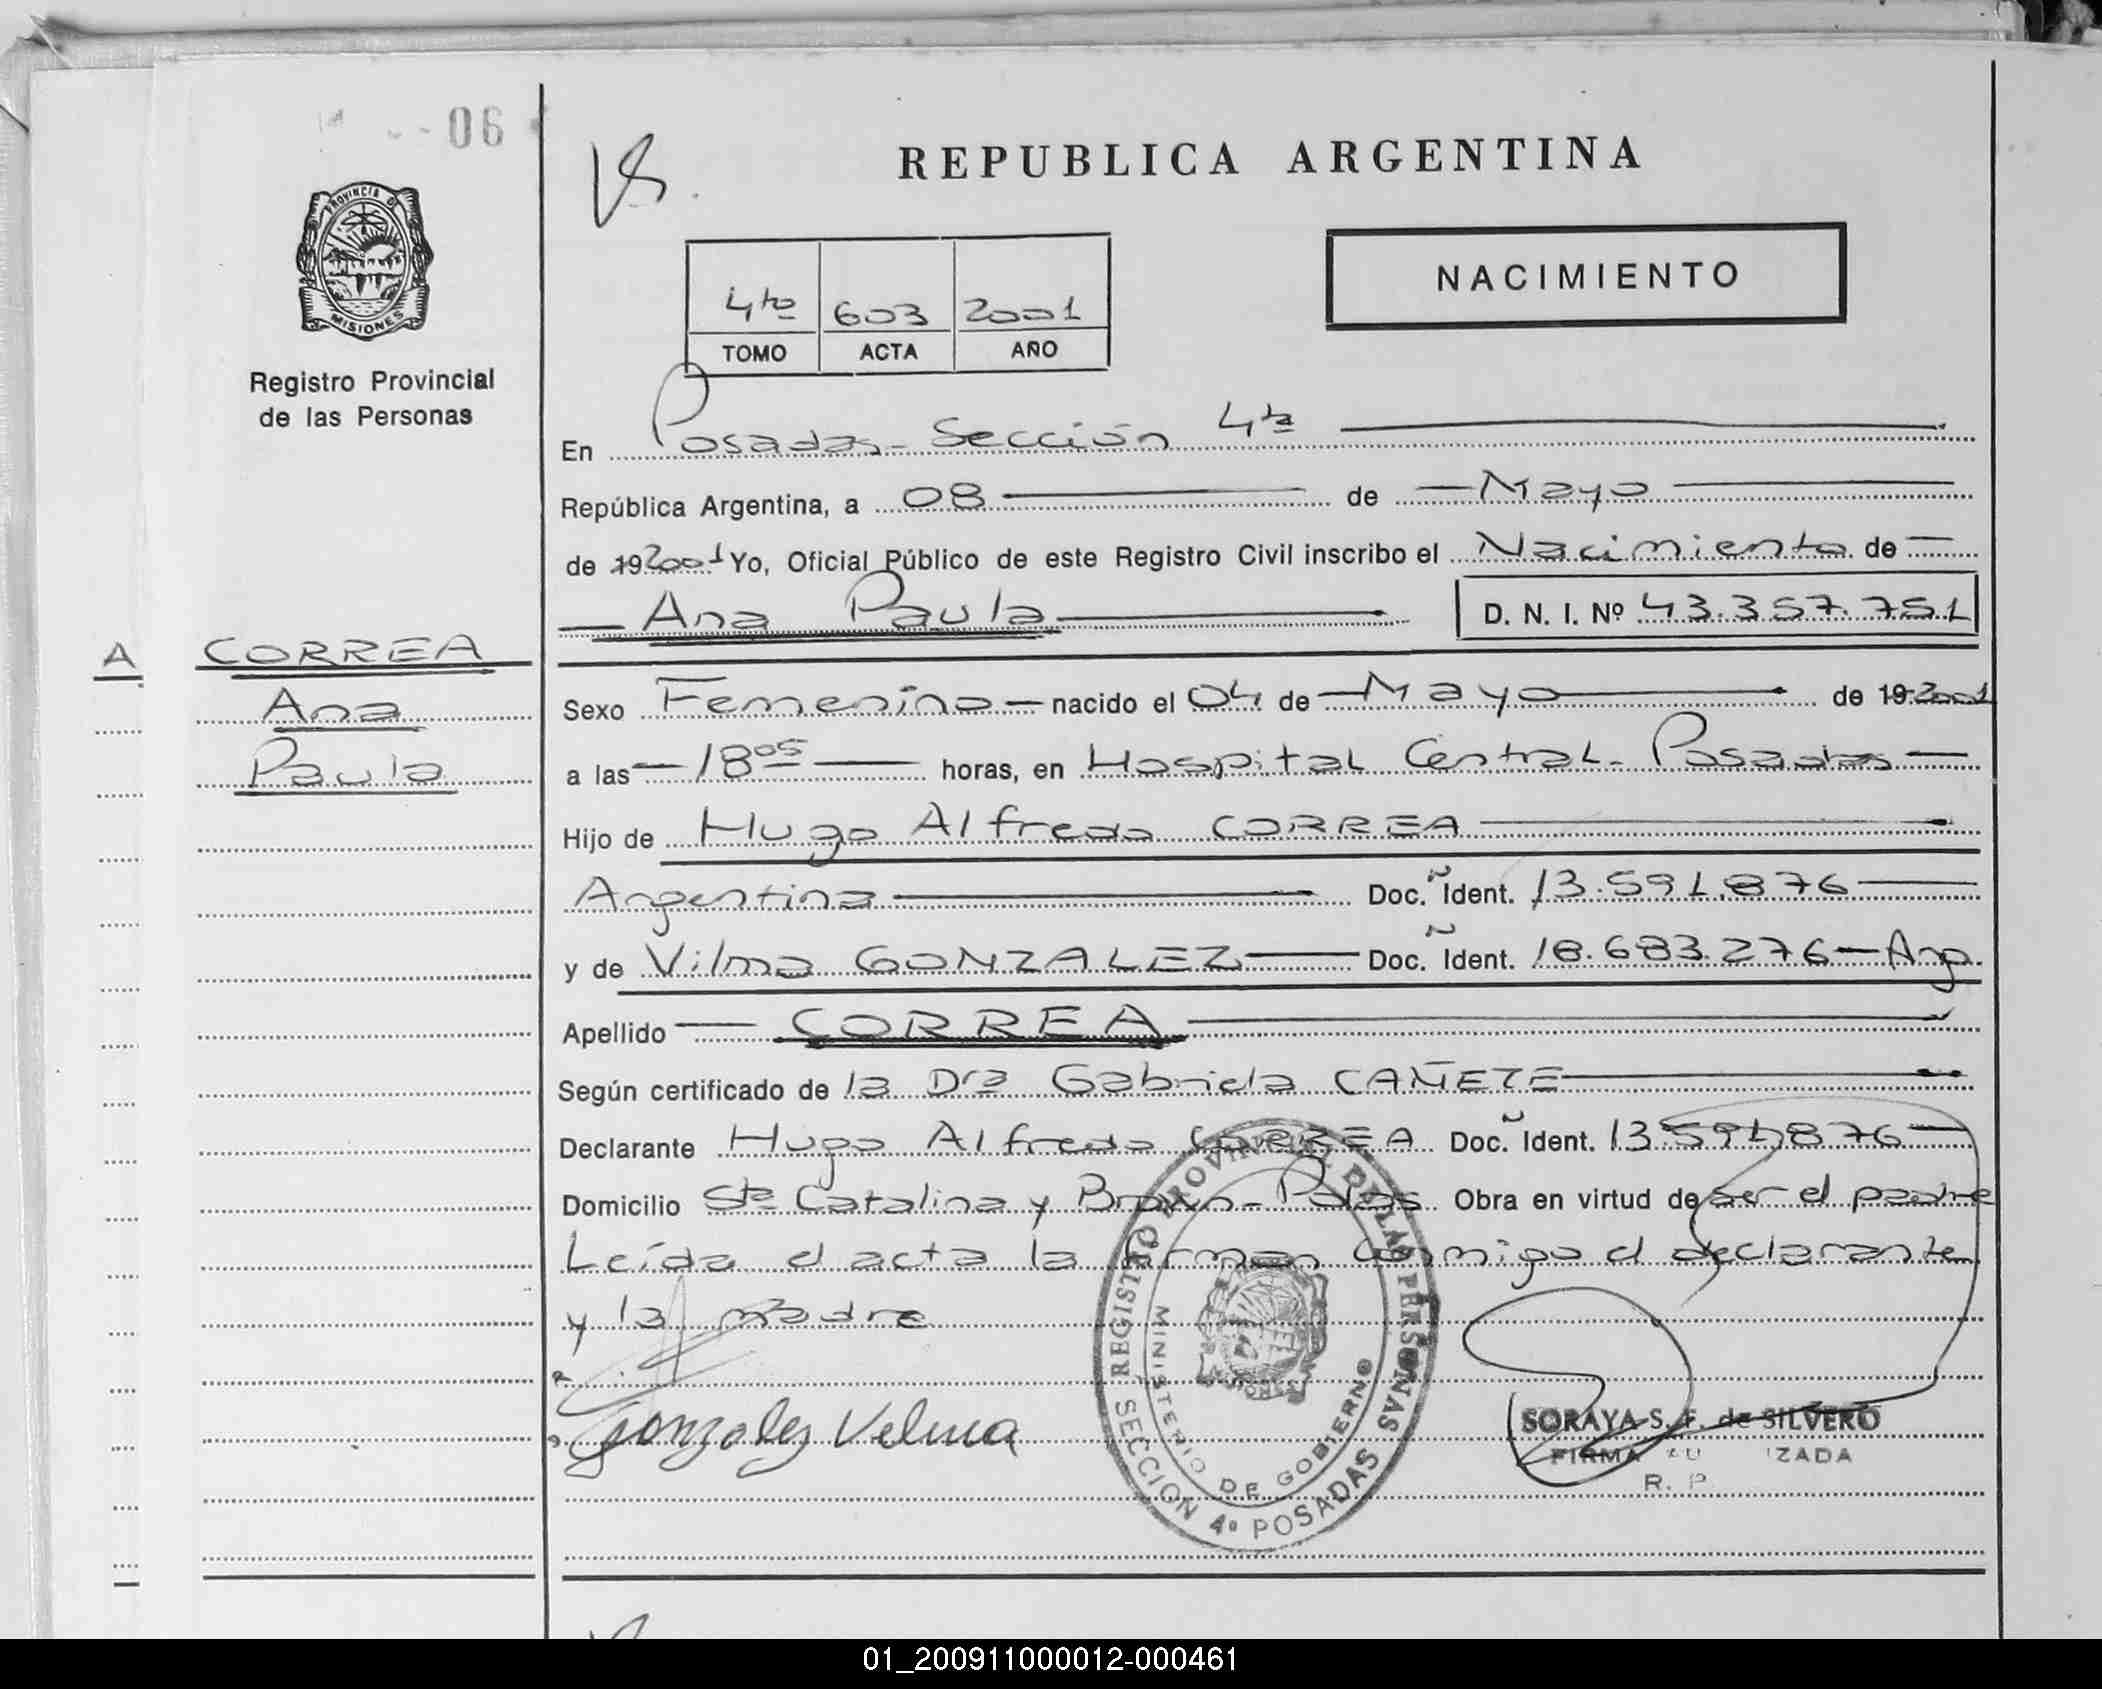 06
REPUBLICA ARGENTINA
PROVINCIA DE
MISIONES
4ta 603 2001
TOMO ACTA AÑO
NACIMIENTO
Registro Provincial
de las Personas
En Posadas - Sección 4ta
República Argentina, a 08 de Mayo
de 19 2001 Yo, Oficial Público de este Registro Civil inscribo el Nacimiento de
Ana Paula D. N. I. Nº 43.357.751
A
CORREA
Ana
Paula
Sexo Femenino nacido el 04 de Mayo de 19 2001
a las 18 05 horas, en Hospital Central - Posadas
Hijo de Hugo Alfredo CORREA
Argentina Doc. Ident. 13.591.876
y de Vilma GONZALEZ Doc. Ident. 18.683.276 - Arg.
Apellido CORREA
Según certificado de la Dra Gabriela CAÑETE
Declarante Hugo Alfredo CORREA Doc. Ident. 13.591.876
Domicilio Sta Catalina y Brown - Pdas Obra en virtud de ser el padre
Leída el acta la firman conmigo el declarante
y la madre
Gonzalez Velma
REGISTRO PROVINCIAL DE LAS PERSONAS
MINISTERIO DE GOBIERNO
SECCION 4º POSADAS
SORAYA S. F. de SILVERO
FIRMA
R. P.
01_200911000012-000461